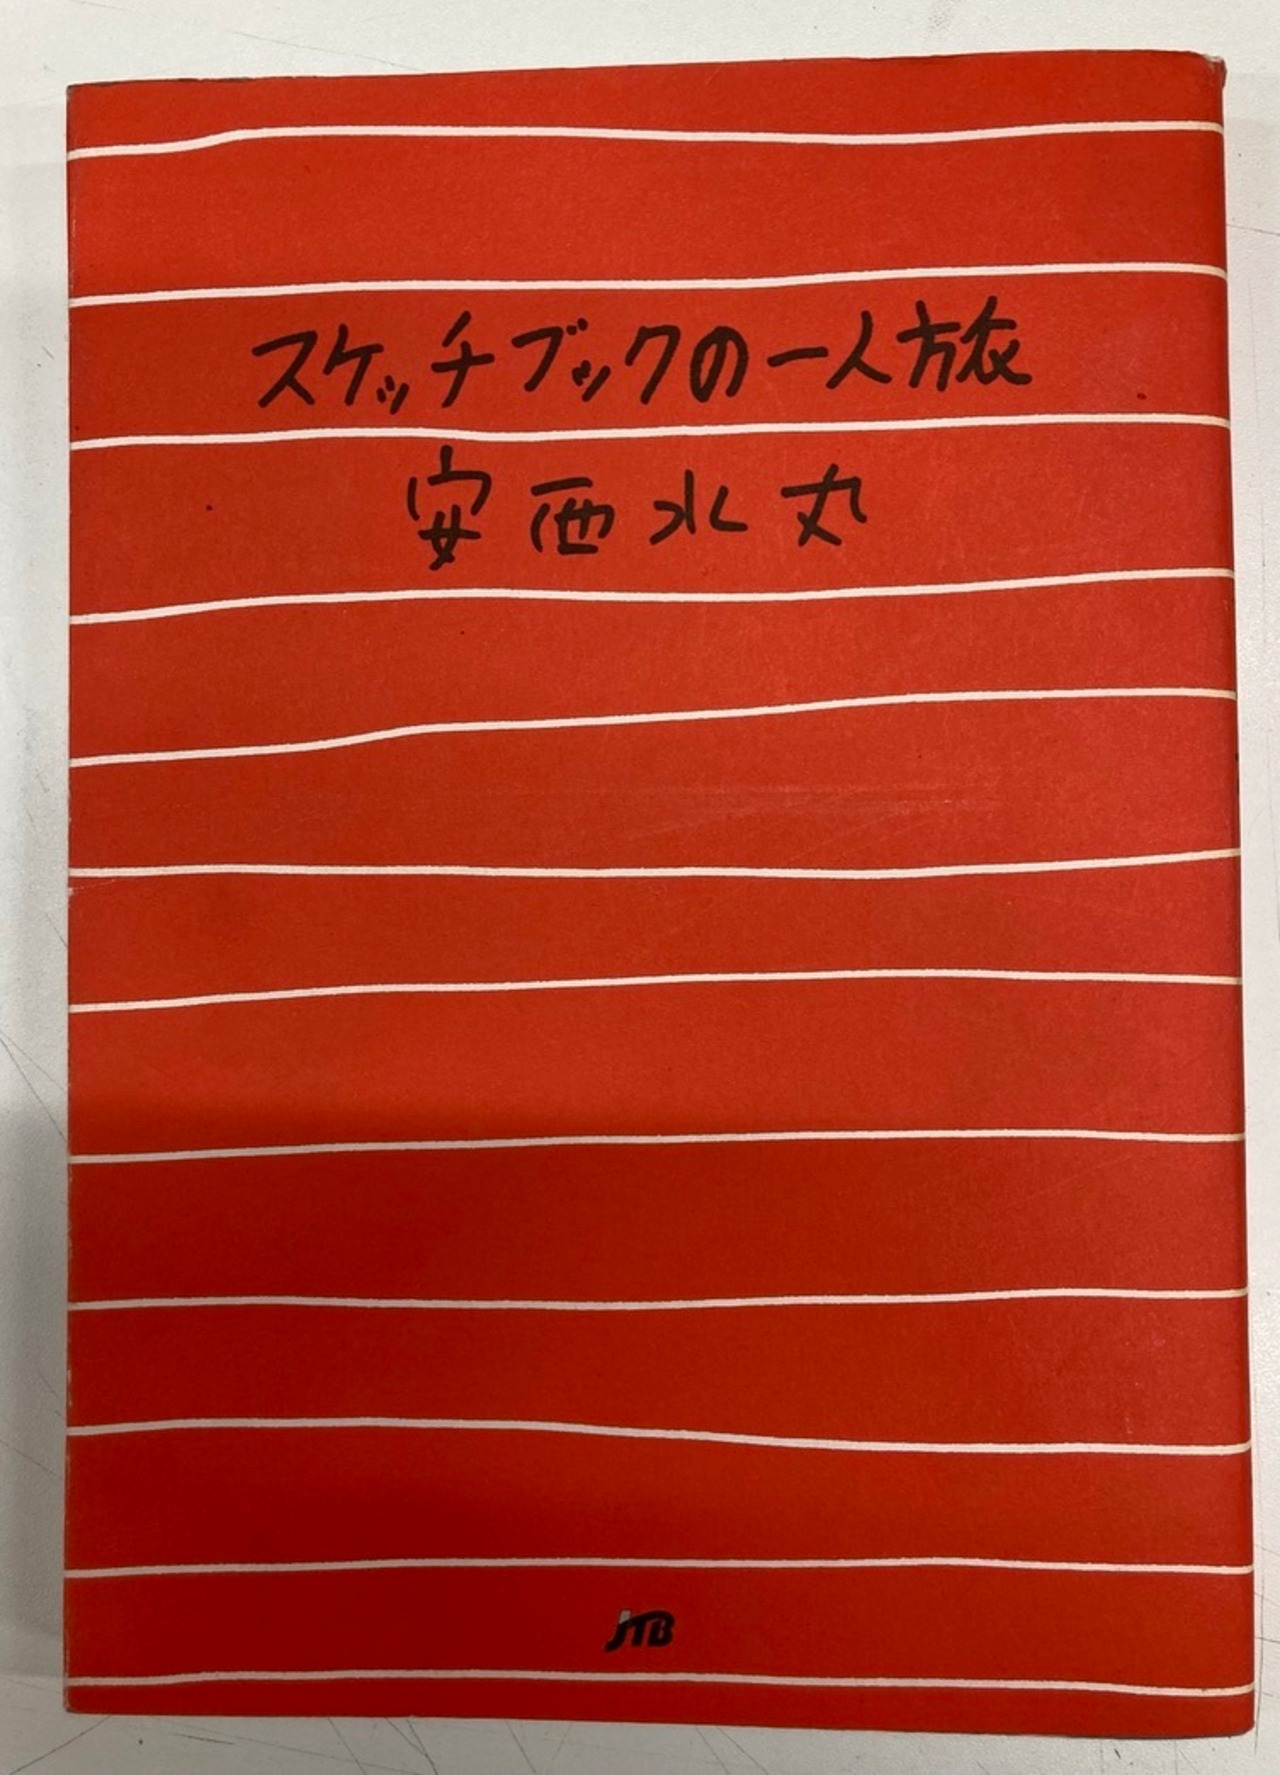 スケッチブックの一人旅
安西水丸
JTB